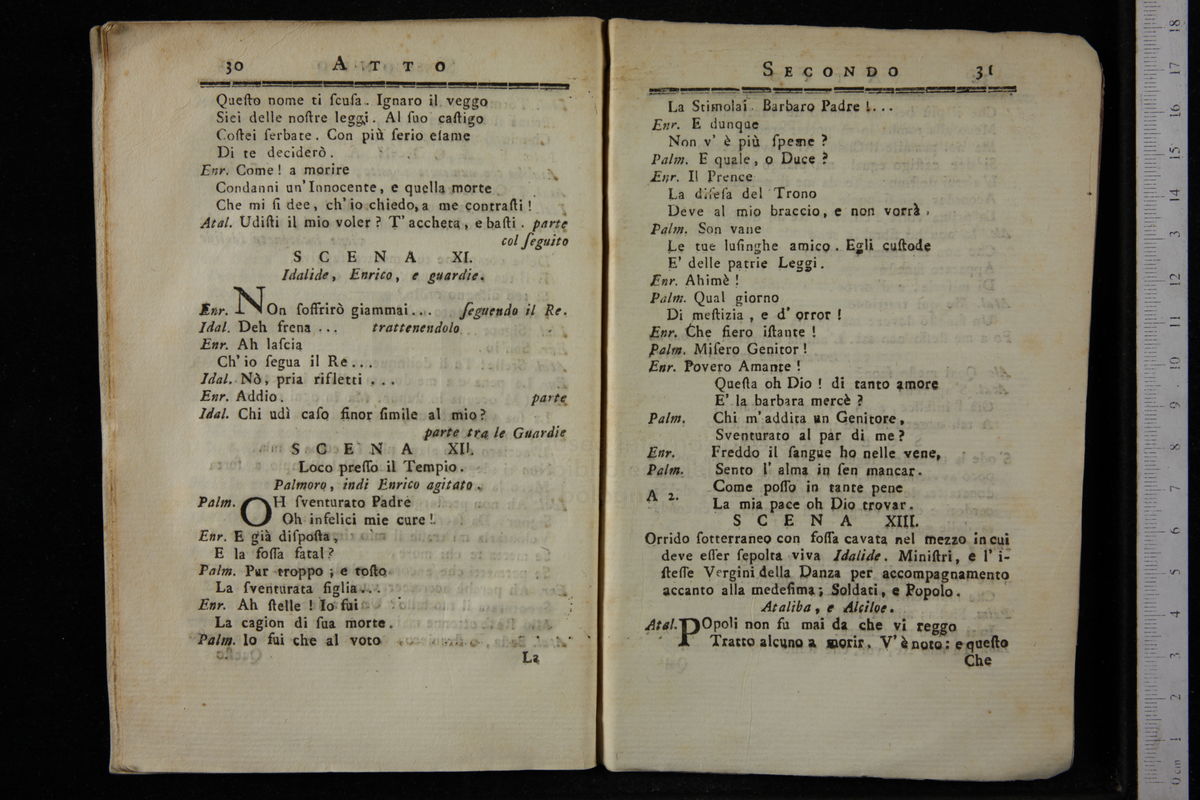 30 ATTO
Queſto nome ti ſcuſa. Ignaro il veggo
Siei delle noſtre leggi. Al ſuo caſtigo
Coſtei ſerbate. Con più ſerio eſame
Di te deciderò.
Enr. Come! a morire
Condanni un'Innocente, e quella morte
Che mi ſi dee, ch'io chiedo, a me contraſti!
Atal. Udiſti il mio voler? T'accheta, e baſti. parte
col ſeguito
SCENA XI.
Idalide, Enrico, e guardie.
Enr. NOn ſoffrirò giammai... ſeguendo il Re.
Idal. Deh frena ... trattenendolo
Enr. Ah laſcia
Ch'io ſegua il Re...
Idal. Nò, pria rifletti ...
Enr. Addio. parte
Idal. Chi udì caſo finor ſimile al mio?
parte tra le Guardie
SCENA XII.
Loco preſſo il Tempio.
Palmoro, indi Enrico agitato.
Palm. OH ſventurato Padre
Oh infelici mie cure!
Enr. E già diſpoſta,
E la foſſa fatal?
Palm. Pur troppo; e toſto
La ſventurata figlia...
Enr. Ah ſtelle! Io fui
La cagion di ſua morte.
Palm. Io fui che al voto
La
SECONDO 31
La Stimolai. Barbaro Padre!...
Enr. E dunque
Non v' è più ſpeme?
Palm. E quale, o Duce?
Enr. Il Prence
La difeſa del Trono
Deve al mio braccio, e non vorrà,
Palm. Son vane
Le tue luſinghe amico. Egli cuſtode
E' delle patrie Leggi.
Enr. Ahimè!
Palm. Qual giorno
Di meſtizia, e d' orror!
Enr. Che fiero iſtante!
Palm. Miſero Genitor!
Enr. Povero Amante!
Queſta oh Dio! di tanto amore
E' la barbara mercè?
Palm. Chi m'addita un Genitore,
Sventurato al par di me?
Enr. Freddo il ſangue ho nelle vene,
Palm. Sento l' alma in ſen mancar.
A 2. Come poſſo in tante pene
La mia pace oh Dio trovar.
SCENA XIII.
Orrido ſotterraneo con foſſa cavata nel mezzo in cui
deve eſſer ſepolta viva Idalide. Miniſtri, e l' i-
ſteſſe Vergini della Danza per accompagnamento
accanto alla medeſima; Soldati, e Popolo.
Ataliba, e Alciloe.
Atal. POpoli non fu mai da che vi reggo
Tratto alcuno a morir. V' è noto: e queſto
Che
0cm 1 2 3 4 5 6 7 8 9 10 11 12 13 14 15 16 17 18